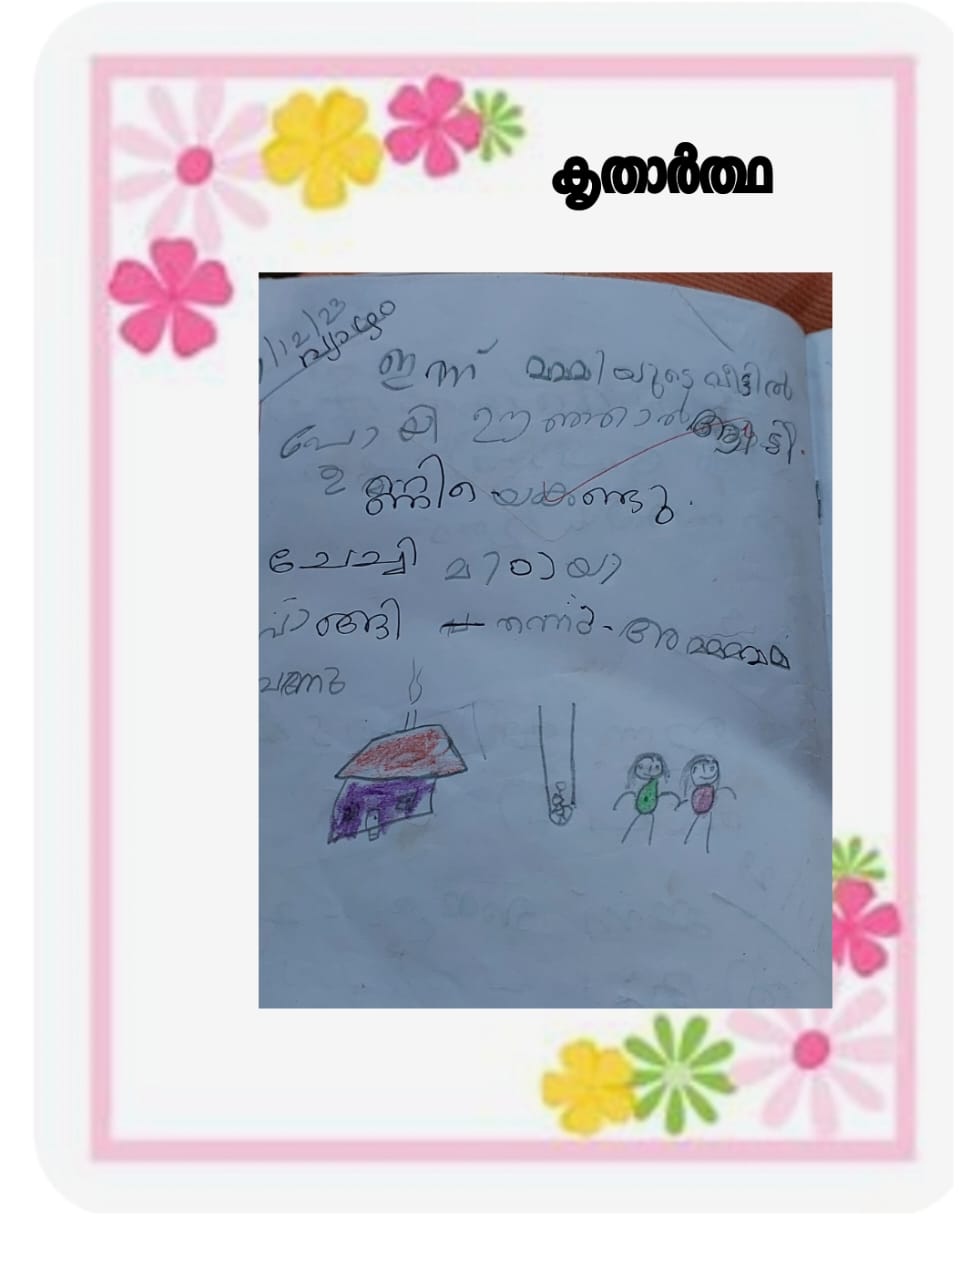 കൃതാർത്ഥ
/12/23
വ്യാഴം
ഇന്ന് മമ്മിയുടെ വീട്ടിൽ
പോയി ഊഞ്ഞാൽ ആടി.
ഉണ്ണിയെ കണ്ടു.
ചേച്ചി മിഠായി
വാങ്ങി തന്നു. അമ്മമ്മ
വന്നു